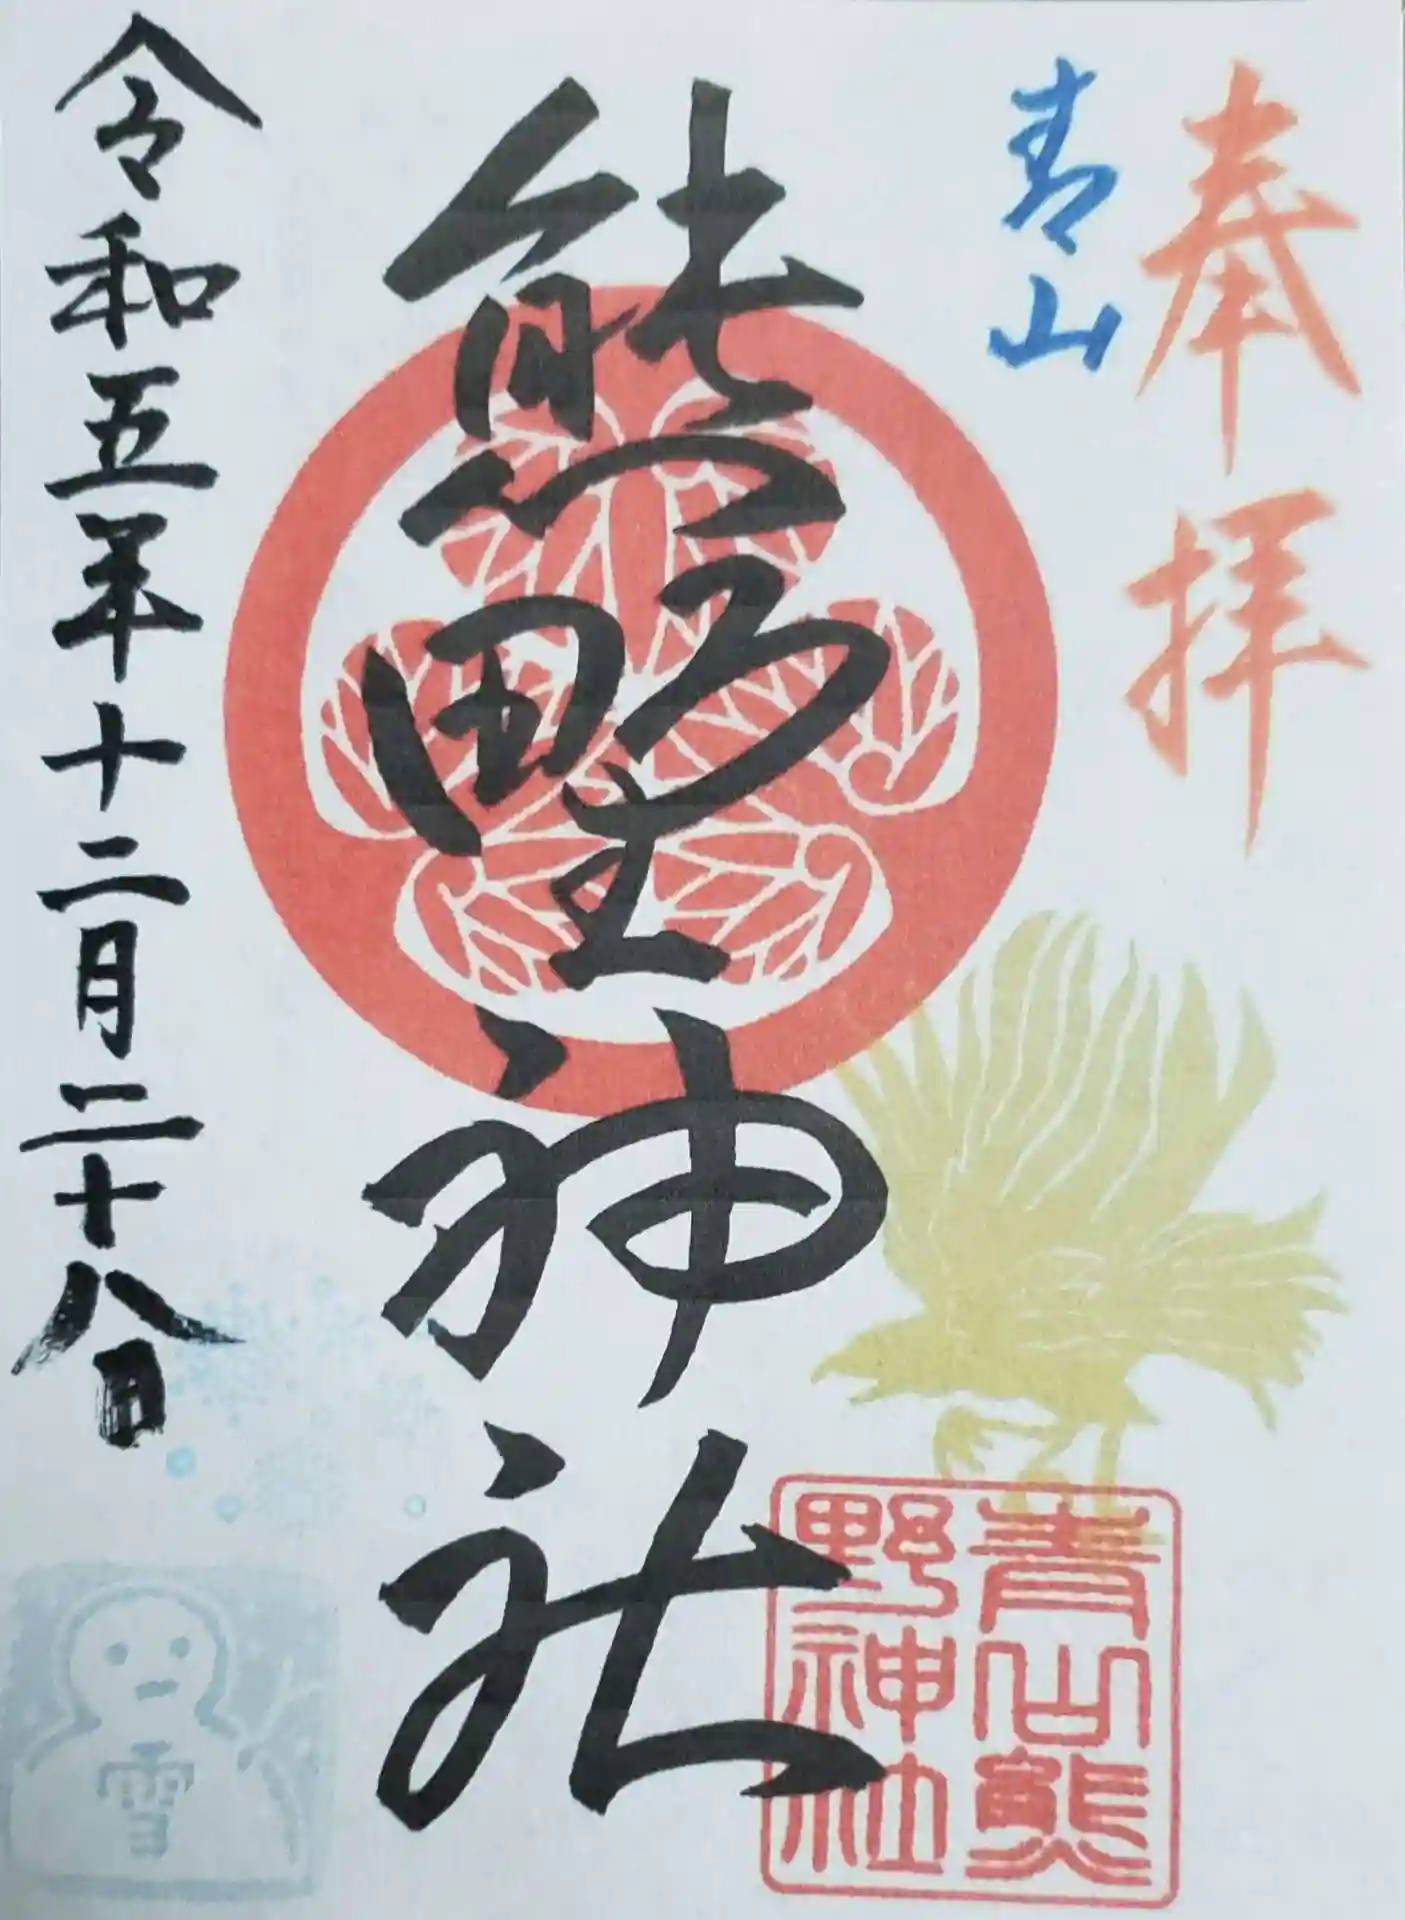 奉拝
青山
熊野神社
令和五年十二月二十八日
青山熊
野神社
雪